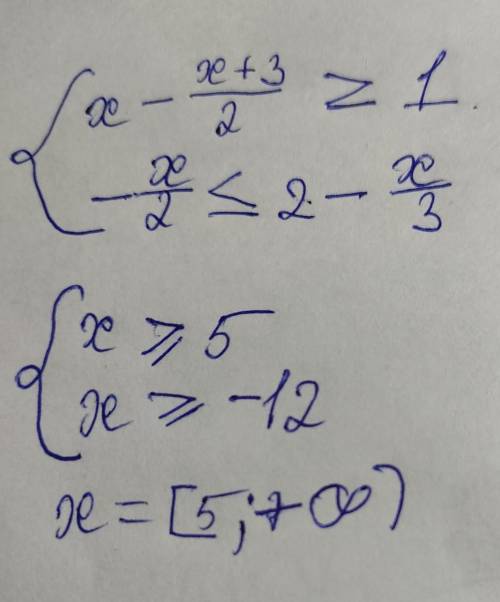 x - \frac{x+3}{2} ≥ 1
-\frac{x}{2} ≤ 2 - \frac{x}{3}
x ≥ 5
x ≥ -12
x = [5; +∞)